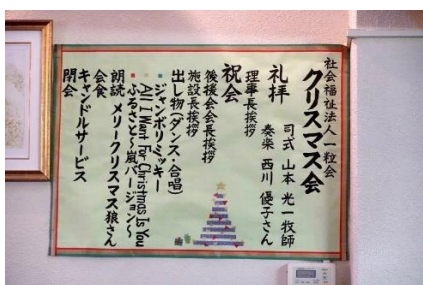 社会福祉法人 一粒会
クリスマス会
礼拝
司式 山本 光一牧師
奏楽 西川 優子さん
理事長挨拶
祝会
後援会会長挨拶
施設長挨拶
出し物(ダンス・合唱)
ジャンボリミッキー
All I Want For Christmas Is You
ふるさと〜嵐バージョン〜
朗読 メリークリスマス狼さん
会食
キャンドルサービス
閉会